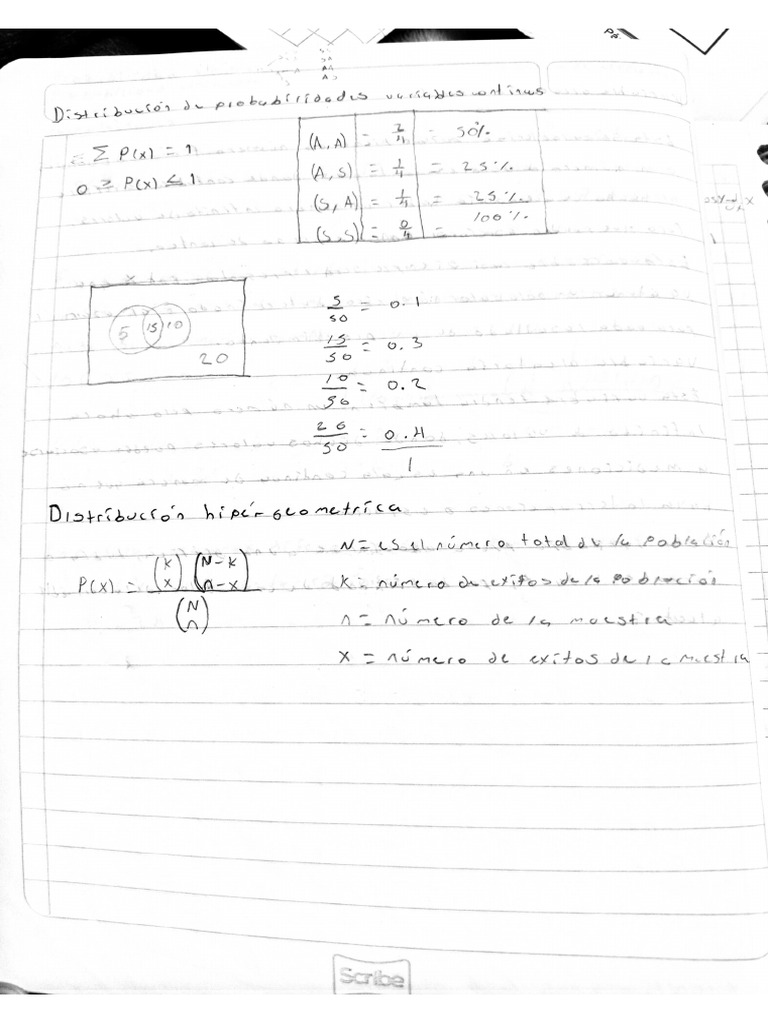 Distribución de probabilidades variables continuas
Σ P(x) = 1
0 ≥ P(x) ≤ 1
(A, A) = 2/4 = 50%
(A, S) = 1/4 = 25%
(S, A) = 1/4 = 25%
(S, S) = 0/4 = 100%
5 15 10
20
5/50 = 0.1
15/50 = 0.3
10/50 = 0.2
20/50 = 0.4
1
Distribución hipergeometrica
P(x) = (k x) (N-k n-x) / (N n)
N = es el número total de la Población
k = número de exitos de la Población
n = número de la muestra
x = número de exitos de la muestra
Scribe